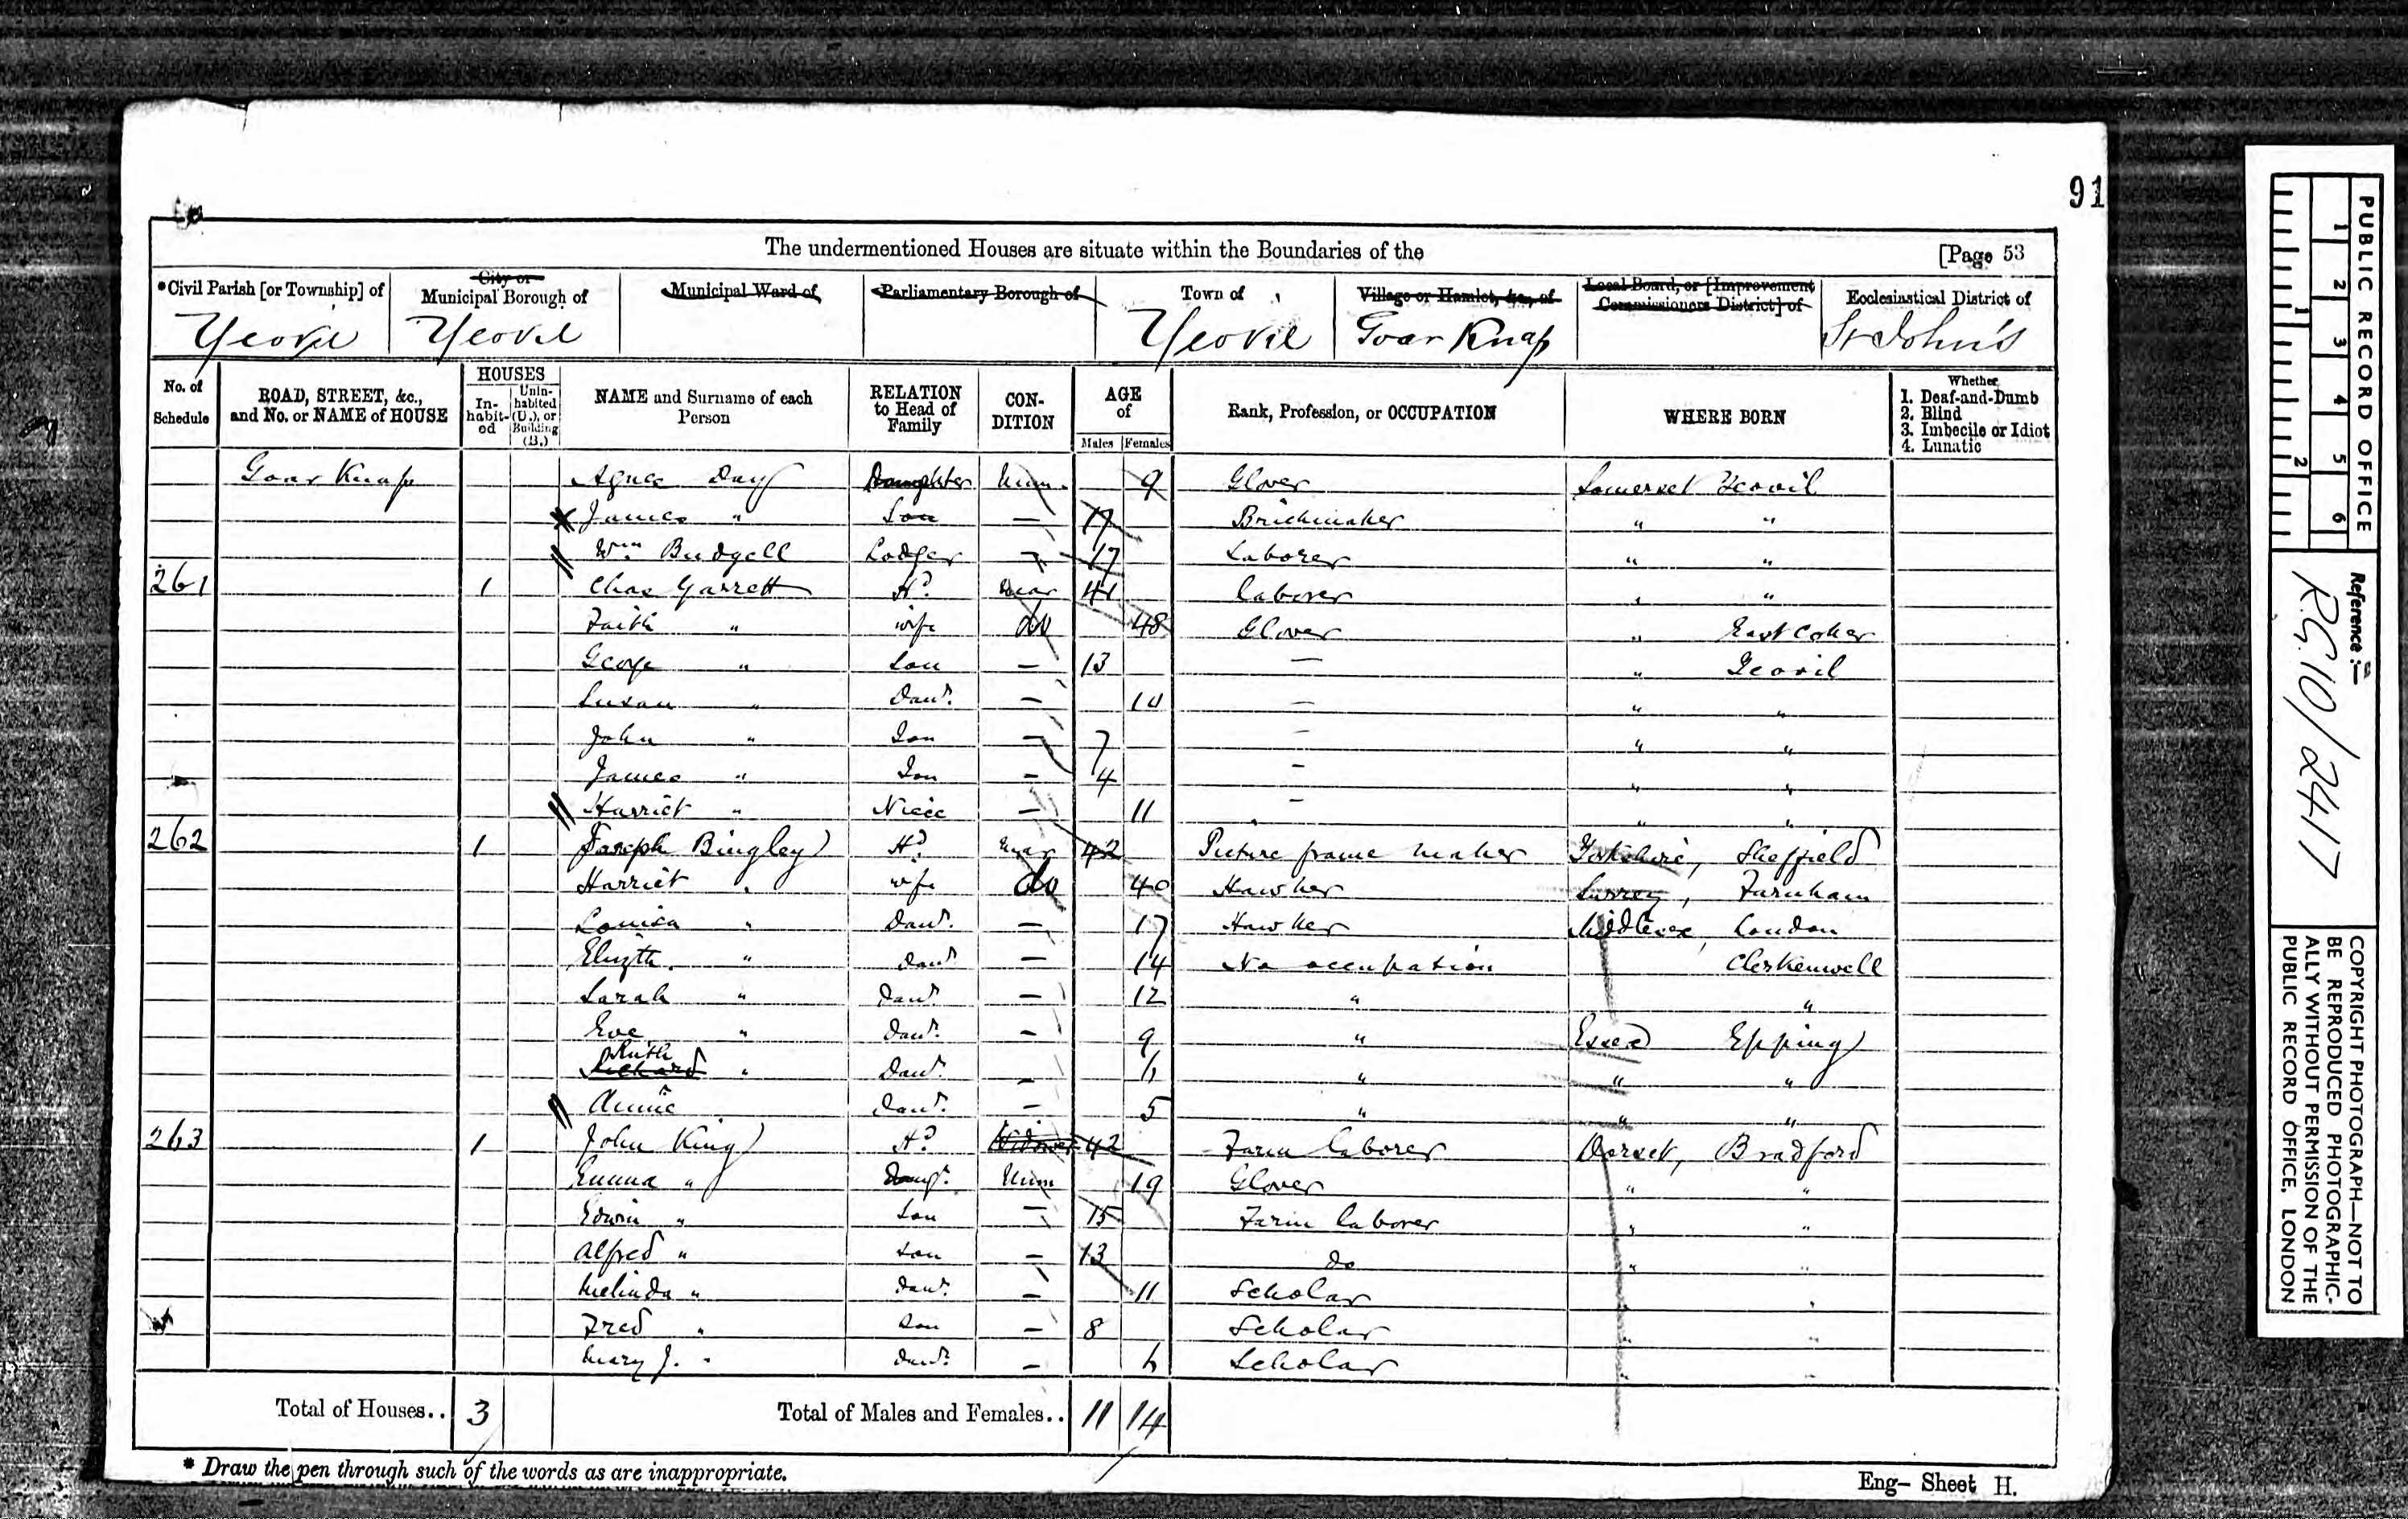 91
The undermentioned Houses are situate within the Boundaries of the [Page 53
*Civil Parish [or Township] of
City or Municipal Borough of
Municipal Ward of
Parliamentary Borough of
Town of
Village or Hamlet, &c., of
Local Board, or [Improvement Commissioners District] of
Ecclesiastical District of
Yeovil Yeovil Yeovil Goar Knap St John's
No. of Schedule
ROAD, STREET, &c., and No. or NAME of HOUSE
HOUSES
In-habit-ed
Unin-habited (U.), or Building (B.)
NAME and Surname of each Person
RELATION to Head of Family
CON-DITION
AGE of
Males Females
Rank, Profession, or OCCUPATION
WHERE BORN
Whether
1. Deaf-and-Dumb
2. Blind
3. Imbecile or Idiot
4. Lunatic
Goar Knap Agnes Day Daughter Unm. 9 Glover Somerset Yeovil
James " Son — 17 Brickmaker " "
Wm Budgell Lodger — 17 Laborer " "
261 1 Chas Garrett Hd Mar 41 laborer " "
Faith " wife do 48 Glover " East Coker
George " Son — 13 — " Yeovil
Susan " Daur. — 10 — " "
John " Son — 7 — " "
James " Son — 4 — " "
Harriet " Niece — 11 — " "
262 1 Joseph Bingley Hd Mar 42 Picture frame maker Yorkshire, Sheffield
Harriet " wife do 40 Hawker Surrey, Farnham
Louisa " Daur. — 17 Hawker Middlesex, London
Elizth. " Daur — 14 No occupation Clerkenwell
Sarah " Daur — 12 " "
Eve " Daur. — 9 " Essex Epping
Ruth
Richard " Daur. — 6 " " "
Annie Daur. — 5 " " "
263 1 John King Hd Widower 42 Farm laborer Dorset, Bradford
Emma " Daugr. Unm 19 Glover " "
Edwin " Son — 15 Farm laborer " "
Alfred " Son — 13 do " "
Melinda " Daur. — 11 Scholar " "
Fred " Son — 8 Scholar " "
Mary J. " Daur. — 6 Scholar " "
Total of Houses.. 3 Total of Males and Females.. 11 14
* Draw the pen through such of the words as are inappropriate.
Eng— Sheet H.
PUBLIC RECORD OFFICE
1 2 3 4 5 6
1 2
Reference:—
R.G. 10/2417
COPYRIGHT PHOTOGRAPH—NOT TO
BE REPRODUCED PHOTOGRAPHIC-
ALLY WITHOUT PERMISSION OF THE
PUBLIC RECORD OFFICE, LONDON